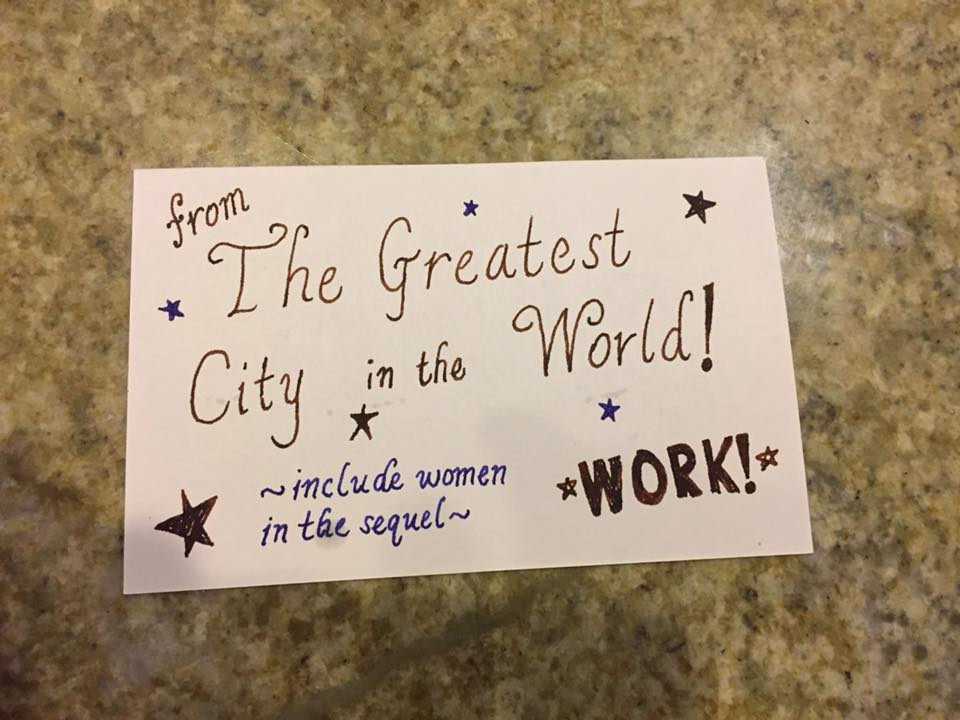 from
The Greatest
City in the World!
~include women
in the sequel~
*WORK!*